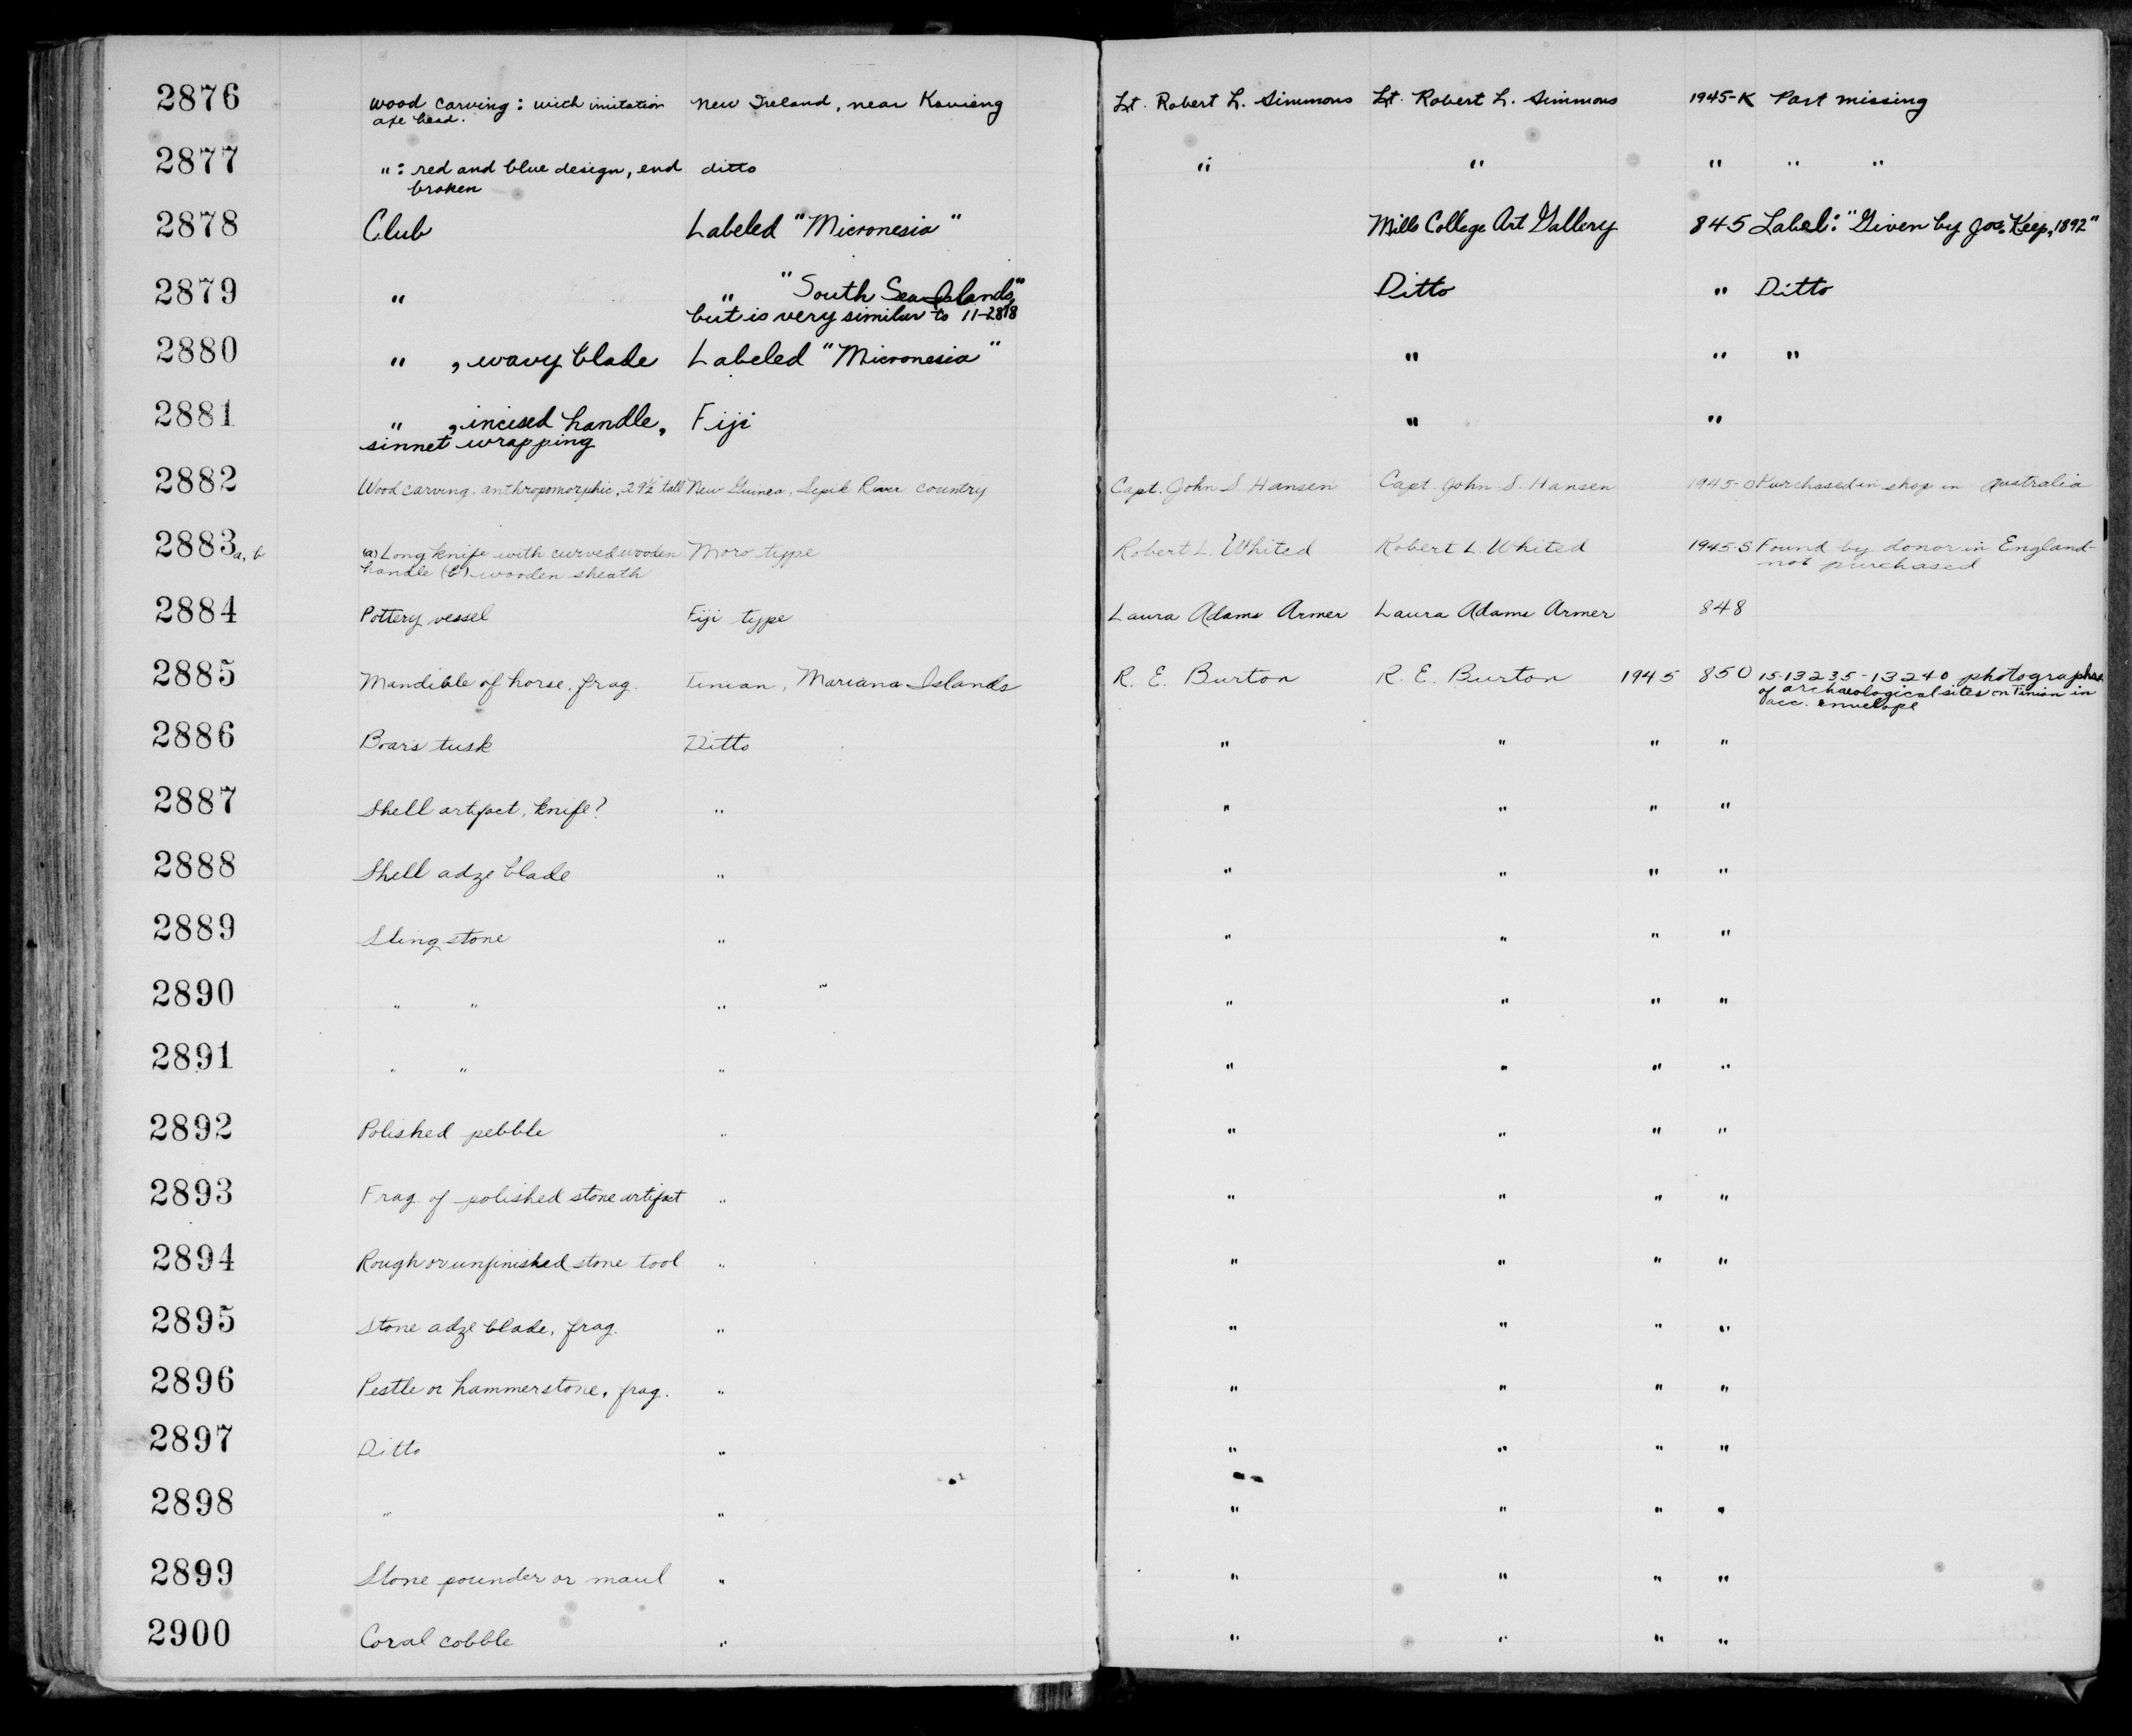 2876 Wood carving: with imitation New Ireland, near Kavieng Lt. Robert L. Simmons Lt. Robert L. Simmons 1945-K Part missing
axe head.
2877 ": red and blue design, end ditto " " " " "
broken
2878 Club Labeled "Micronesia" Mills College Art Gallery 845 Label: "Given by Jos. Keep, 1892"
2879 " " "South Sea Islands," Ditto " Ditto
but is very similar to 11-2878
2880 " , wavy blade Labeled "Micronesia" " " "
2881 " , incised handle, Fiji " "
sinnet wrapping
2882 Wood carving. anthropomorphic, 29½" tall New Guinea, Sepik River country Capt. John S. Hansen Capt. John S. Hansen 1945-O Purchased in shop in Australia
2883a, b (a) Long knife with curved wooden Moro type Robert L. Whited Robert L. Whited 1945-S Found by donor in England-
handle (b) wooden sheath not purchased
2884 Pottery vessel Fiji type Laura Adams Armer Laura Adams Armer 848
2885 Mandible of horse, frag. Tinian, Mariana Islands R. E. Burton R. E. Burton 1945 850 15-13235-13240 photographs
of archaeological sites on Tinian in
acc. envelope
2886 Boars tusk Ditto " " " "
2887 Shell artifact, knife? " " " " "
2888 Shell adze blade " " " " "
2889 Sling stone " " " " "
2890 " " " " " " "
2891 " " " " " " "
2892 Polished pebble " " " " "
2893 Frag. of polished stone artifact " " " " "
2894 Rough or unfinished stone tool " " " " "
2895 Stone adze blade, frag. " " " " "
2896 Pestle or hammerstone, frag. " " " " "
2897 Ditto " " " " "
2898 " " " " " "
2899 Stone pounder or maul " " " " "
2900 Coral cobble " " " " "